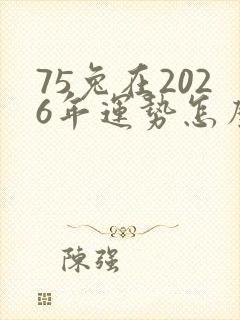 75兔在202
6年運勢怎
陳强